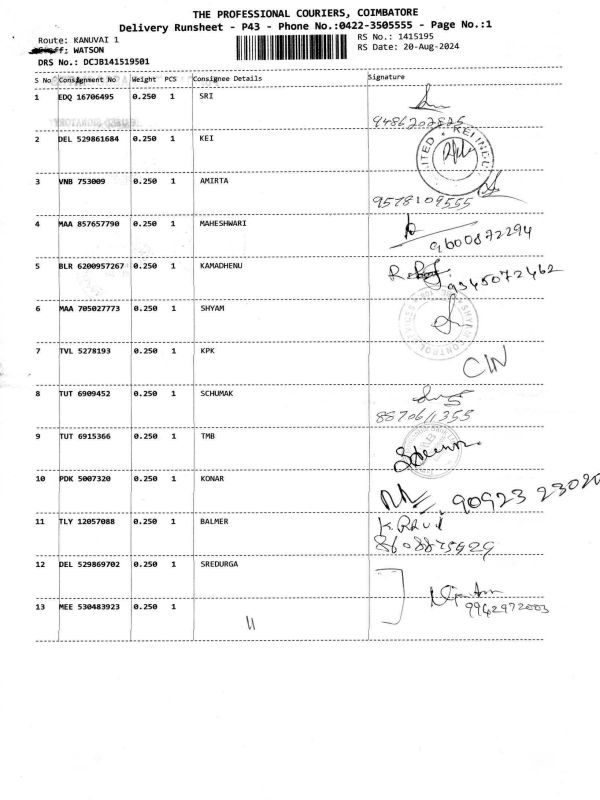 THE PROFESSIONAL COURIERS, COIMBATORE
Delivery Runsheet - P43 - Phone No.:0422-3505555 - Page No.:1
Route: KANUVAI 1
RS No.: 1415195
WATSON
RS Date: 20-Aug-2024
DRS No.: DCJB141519501
S No Consignment No Weight PCS Consignee Details Signature
1 EDQ 16706495 0.250 1 SRI
9486207825
2 DEL 529861684 0.250 1 KEI
3 VNB 753009 0.250 1 AMIRTA
9578109555
4 MAA 857657790 0.250 1 MAHESHWARI
9600872294
5 BLR 6200957267 0.250 1 KAMADHENU
9345072462
6 MAA 705027773 0.250 1 SHYAM
7 TVL 5278193 0.250 1 KPK
CIN
8 TUT 6909452 0.250 1 SCHUMAK
8870611355
9 TUT 6915366 0.250 1 TMB
10 PDK 5007320 0.250 1 KONAR
90923 23020
11 TLY 12057088 0.250 1 BALMER
K. RAVI
8608875929
12 DEL 529869702 0.250 1 SREDURGA
13 MEE 530483923 0.250 1
9942972003
11